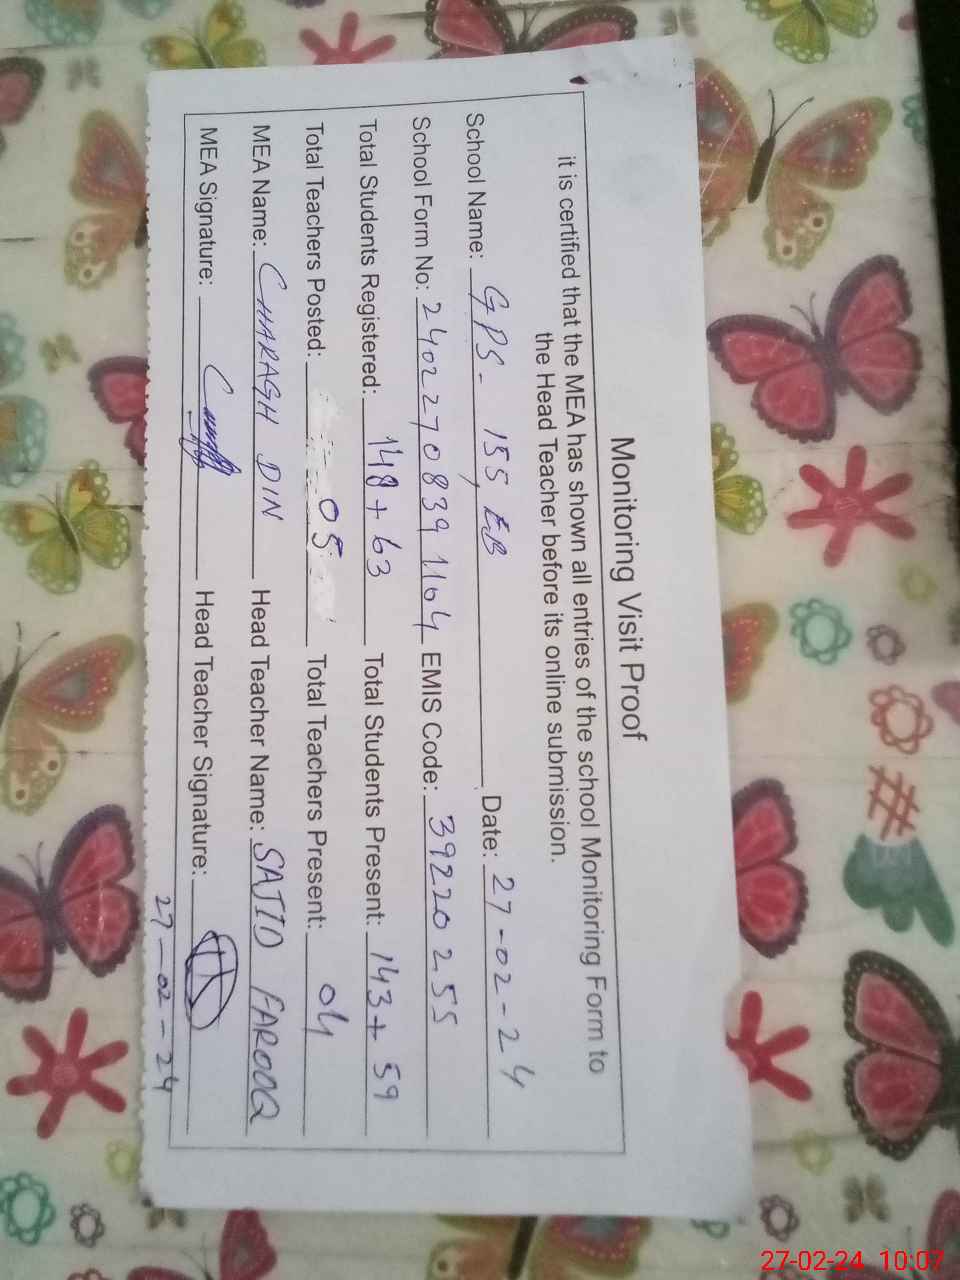 Monitoring Visit Proof
it is certified that the MEA has shown all entries of the school Monitoring Form to
the Head Teacher before its online submission.
School Name: GPS- 155, EB Date: 27-02-24
School Form No: 24022708391104 EMIS Code: 39220255
Total Students Registered: 148+63 Total Students Present: 143+59
Total Teachers Posted: 05 Total Teachers Present: 04
MEA Name: CHARAGH DIN Head Teacher Name: SAJID FAROOQ
MEA Signature: Head Teacher Signature:
27-02-24
27-02-24 10:07